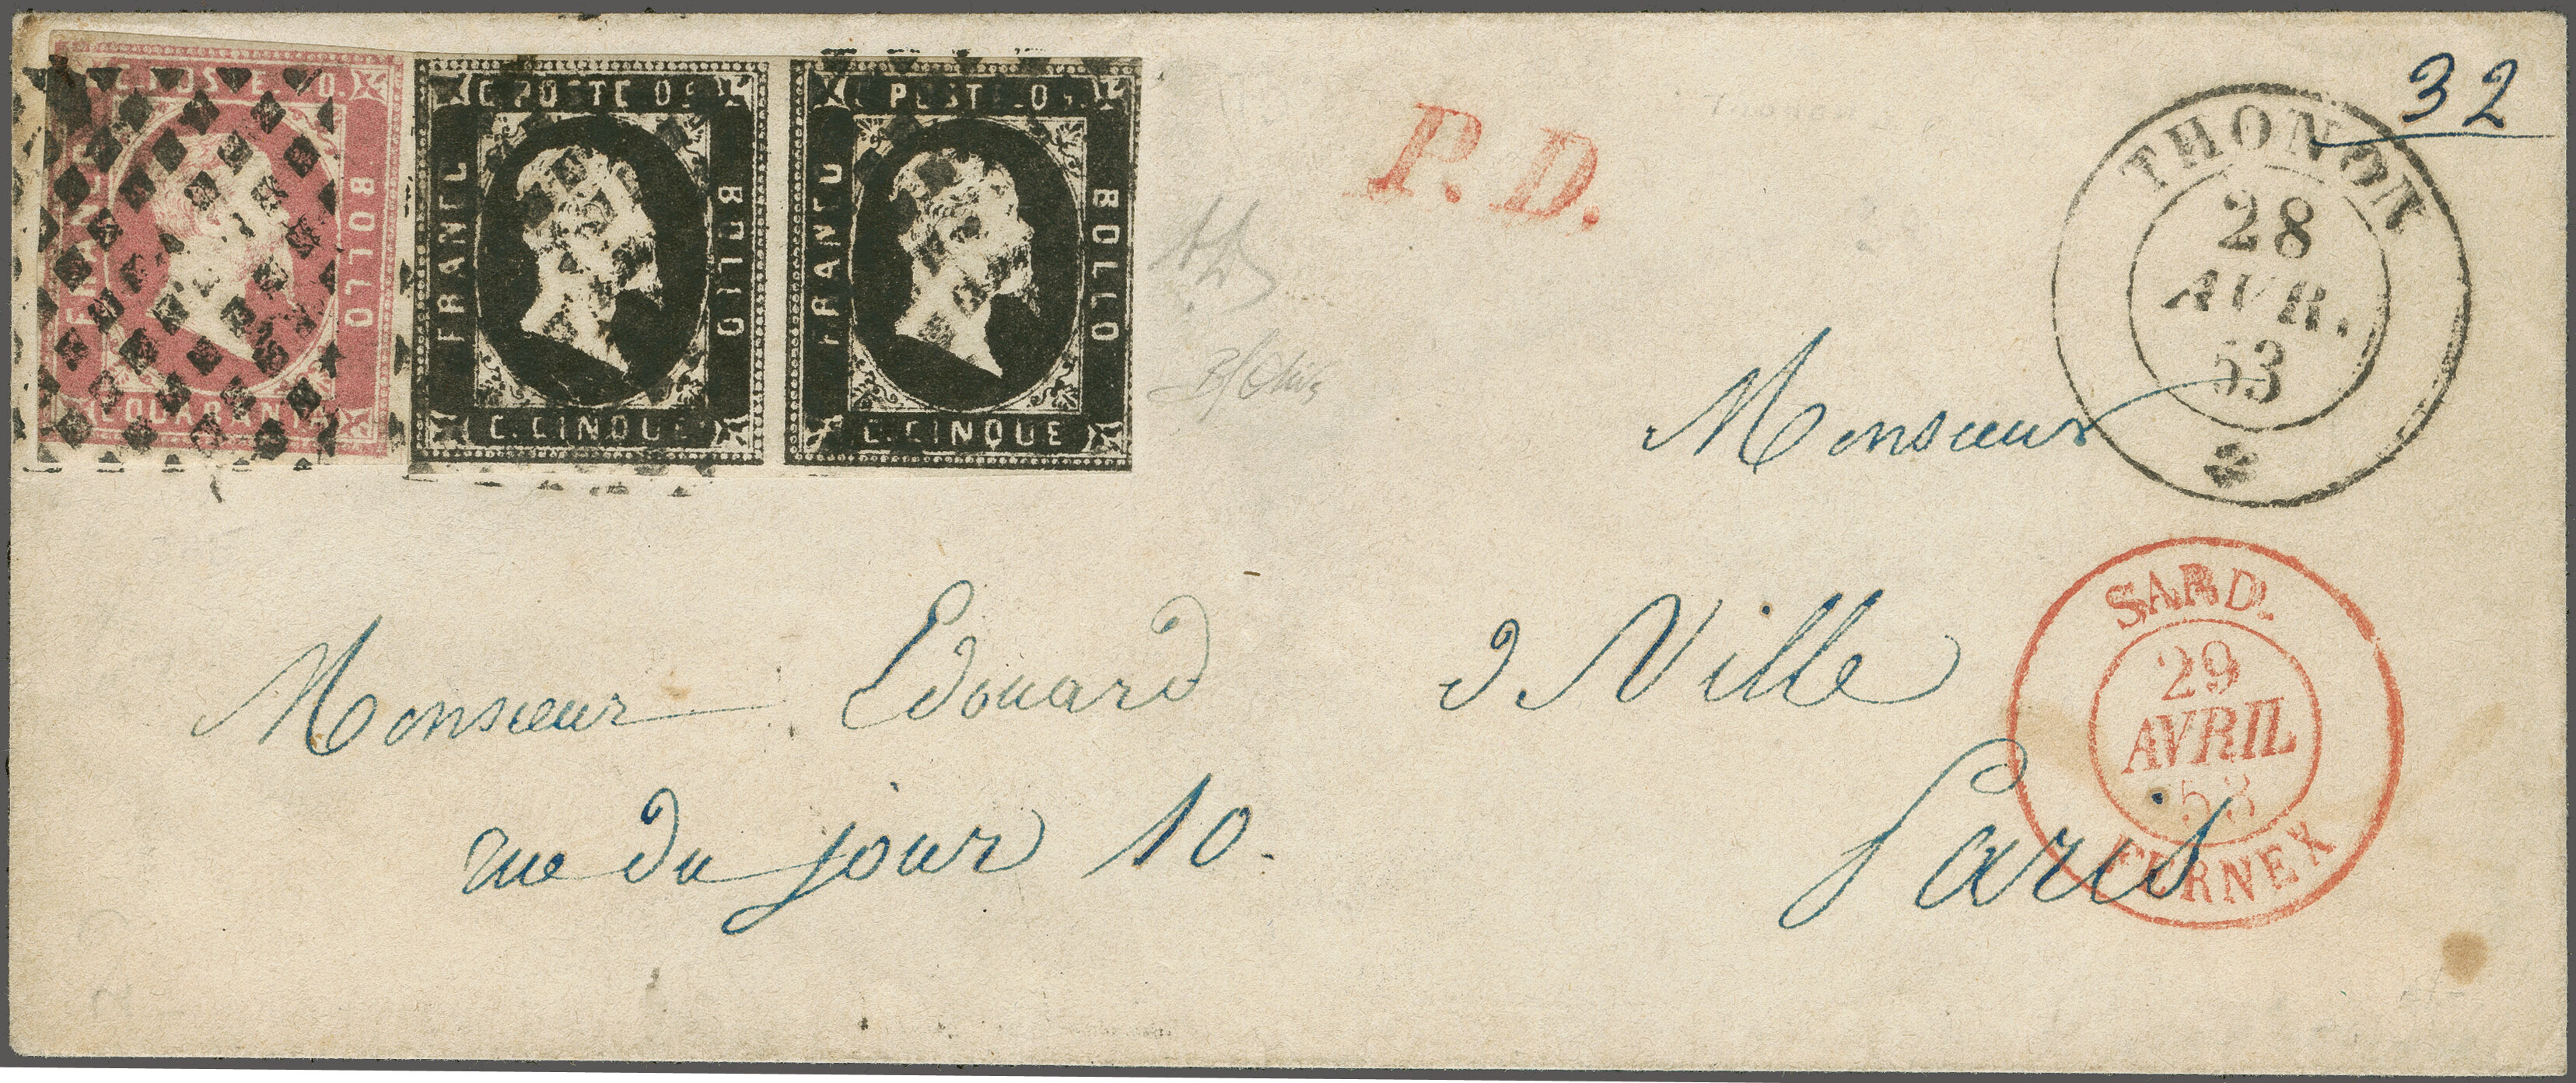 C. POSTE 40.
FRANCO
BOLLO
C. QUARANTA
C. POSTE 05
FRANCO
BOLLO
C. CINQUE
C. POSTE 05.
FRANCO
BOLLO
C. CINQUE
P. D.
32
THONON
28
AVR.
53
2
Monsieur
Monsieur Edouard d Ville
rue du jour 10.
Paris
SARD.
29
AVRIL
53
FERNEX